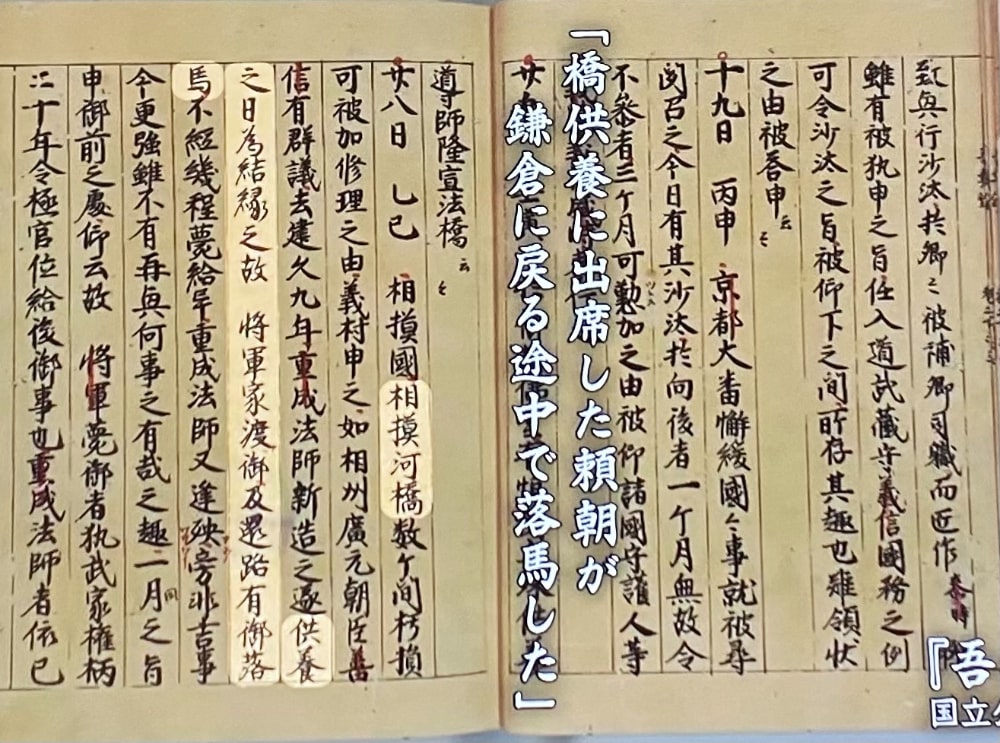 致與行沙汰於卿々被補卿司職而近作 泰時
雖有被執申之旨任入道武蔵守義信國務之例
可令沙汰之旨被仰下之間所存其趣也雖領状
之由被答申云々
十九日 丙申 京都大番懈緩國々事就被尋
聞召之今日有其沙汰於向後者一ケ月無故令
不参者三ケ月可懃加之由被仰諸國守護人等
「橋供養に出席した頼朝が
鎌倉に戻る途中で落馬した」
導師隆宣法橋云々
廿八日 乙巳 相摸國相摸河橋数ケ間朽損
可被加修理之由義村申之如相州廣元朝臣善
信有群議去建久九年重成法師新造之遂供養
之日為結縁之故 將軍家渡御及還路有御落
馬不經幾程薨給畢重成法師又逢殃旁非吉事
今更強雖不有再興何事之有哉之趣一月之旨
申御前之處仰云故 將軍薨御者執武家権柄
二十年令極官位給後御事也重成法師者依已
『吾
国立